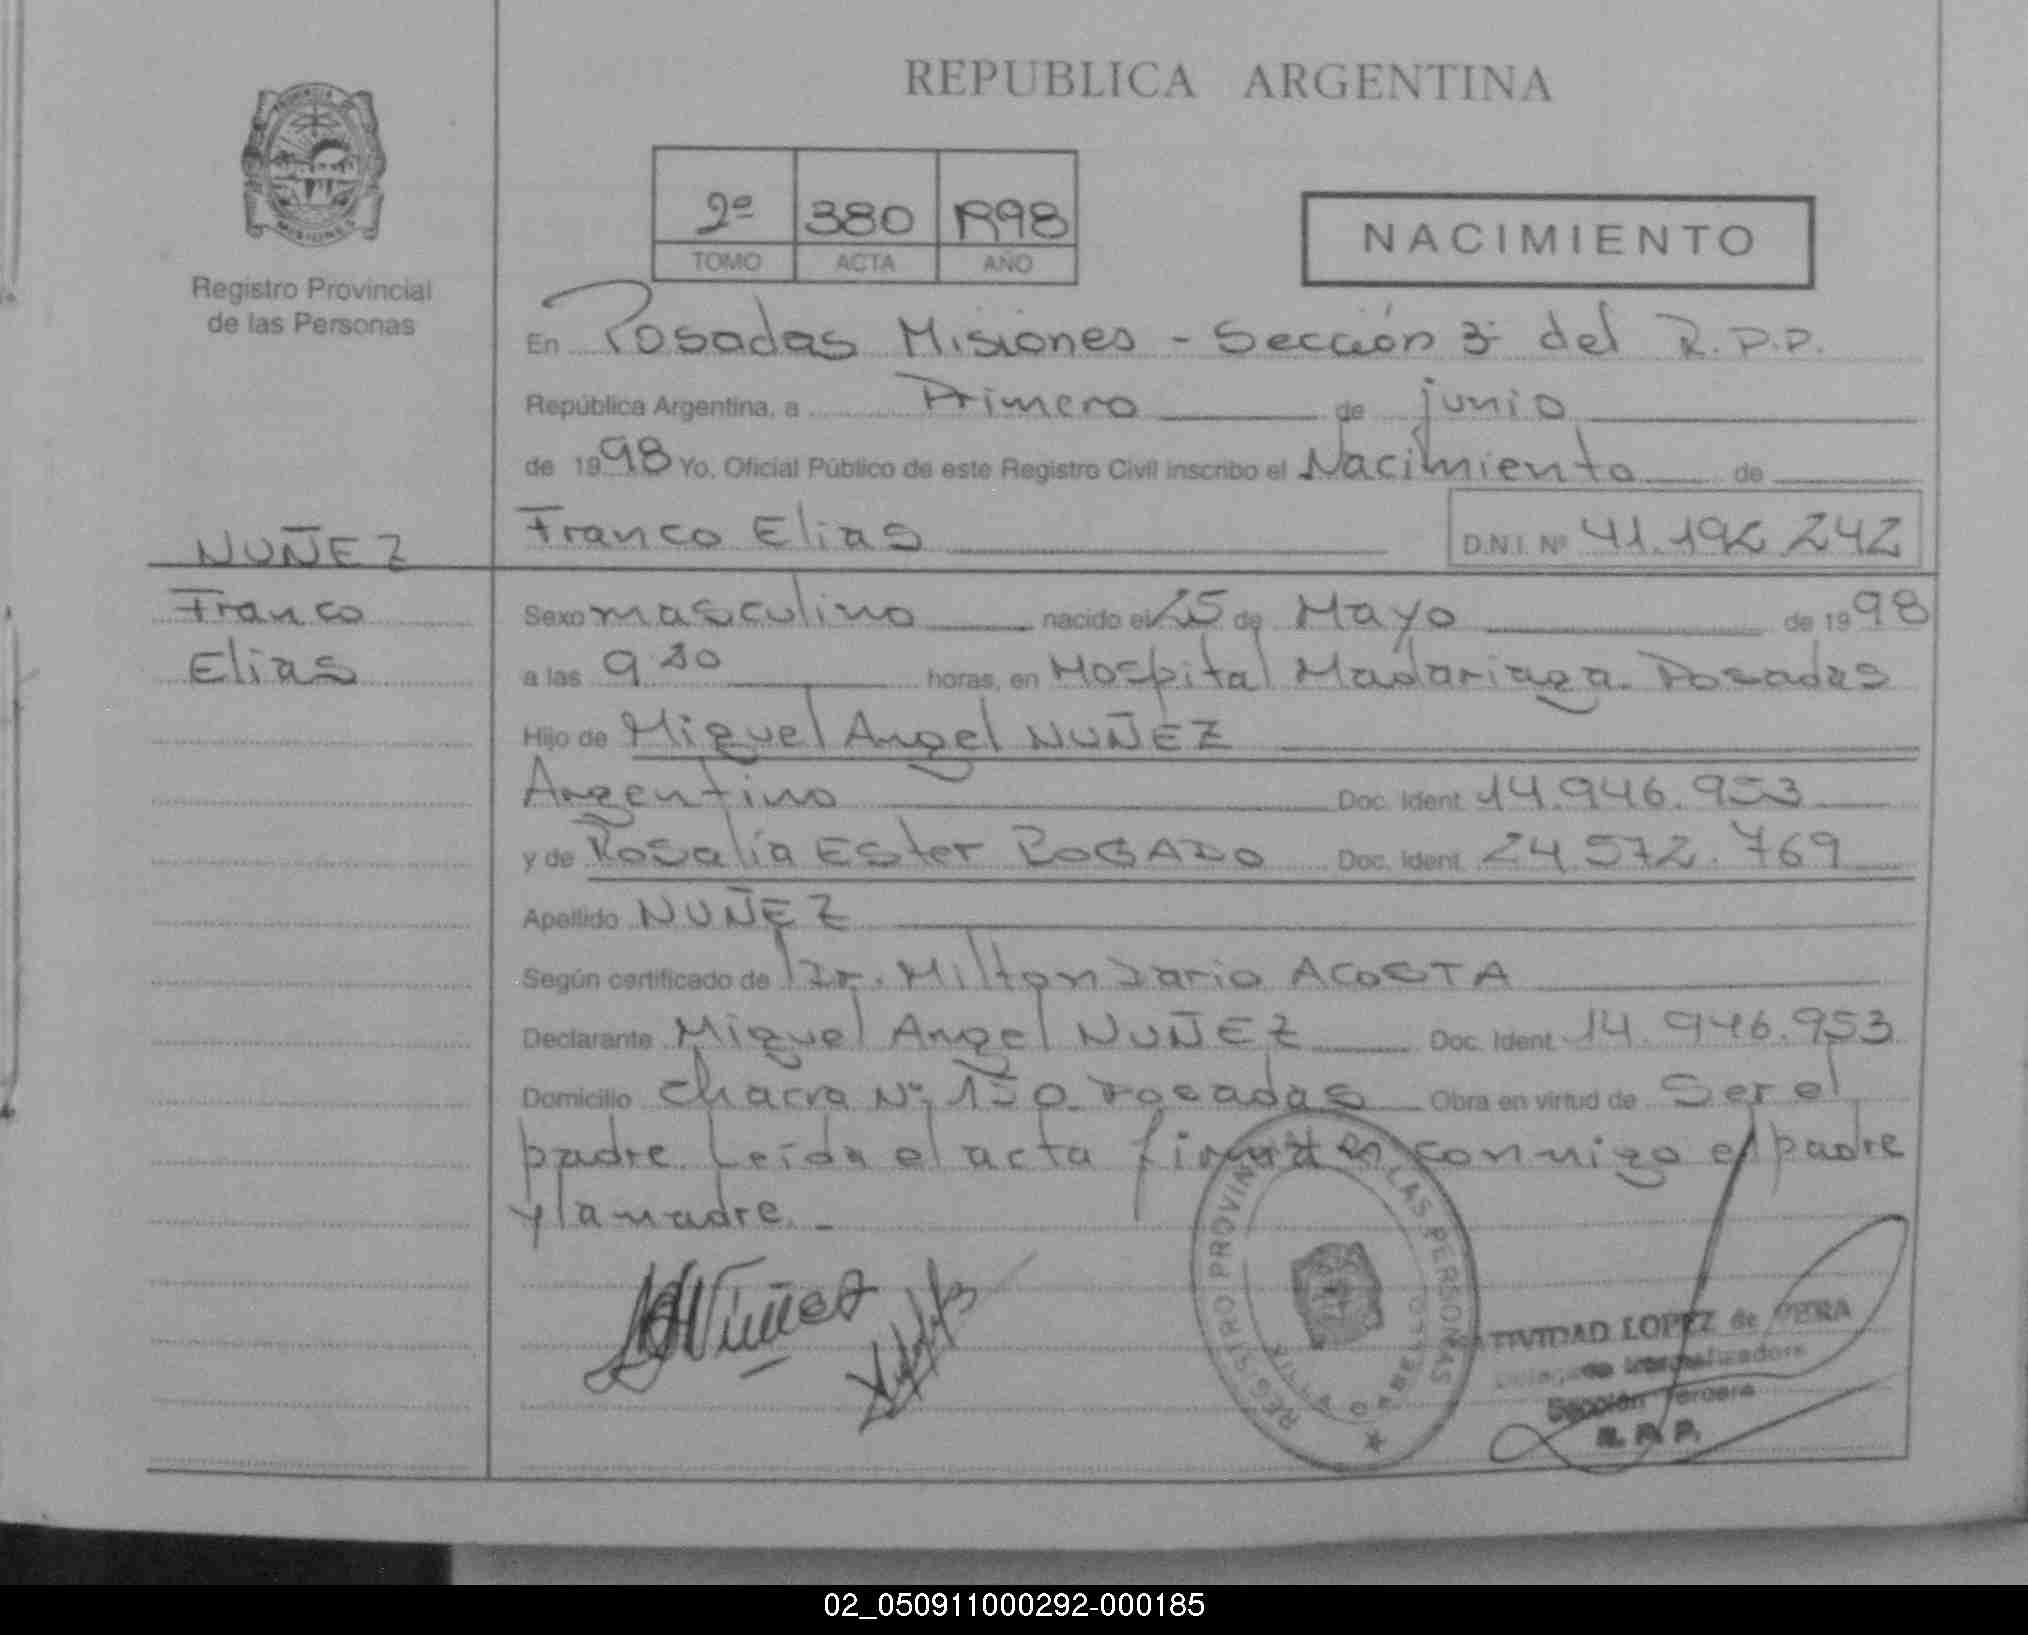 REPUBLICA ARGENTINA
2º 380 1998
TOMO ACTA AÑO
NACIMIENTO
Registro Provincial
de las Personas
En Posadas Misiones - Sección 3ª del R.P.P.
República Argentina, a Primero de junio
de 1998 Yo, Oficial Público de este Registro Civil inscribo el Nacimiento de
Franco Elias D.N.I. Nº 41.192.242
NUÑEZ
Franco
Elias
Sexo masculino nacido el 25 de Mayo de 1998
a las 9 30 horas, en Hospital Madariaga. Posadas
Hijo de Miguel Angel NUÑEZ
Argentino Doc. Ident. 14.946.953
y de Rosalía Ester Doc. Ident. 24.572.769
Apellido NUÑEZ
Según certificado de Dr. Milton Dario ACOSTA
Declarante Miguel Angel NUÑEZ Doc. Ident. 14.946.953
Domicilio Chacra Nº 150 Posadas Obra en virtud de Ser el
padre. Leída el acta firman conmigo el padre
y la madre. -
REGISTRO PROVINCIAL LAS PERSONAS
TIVIDAD LOPEZ de
Sección Tercera
R. P. P.
02_050911000292-000185